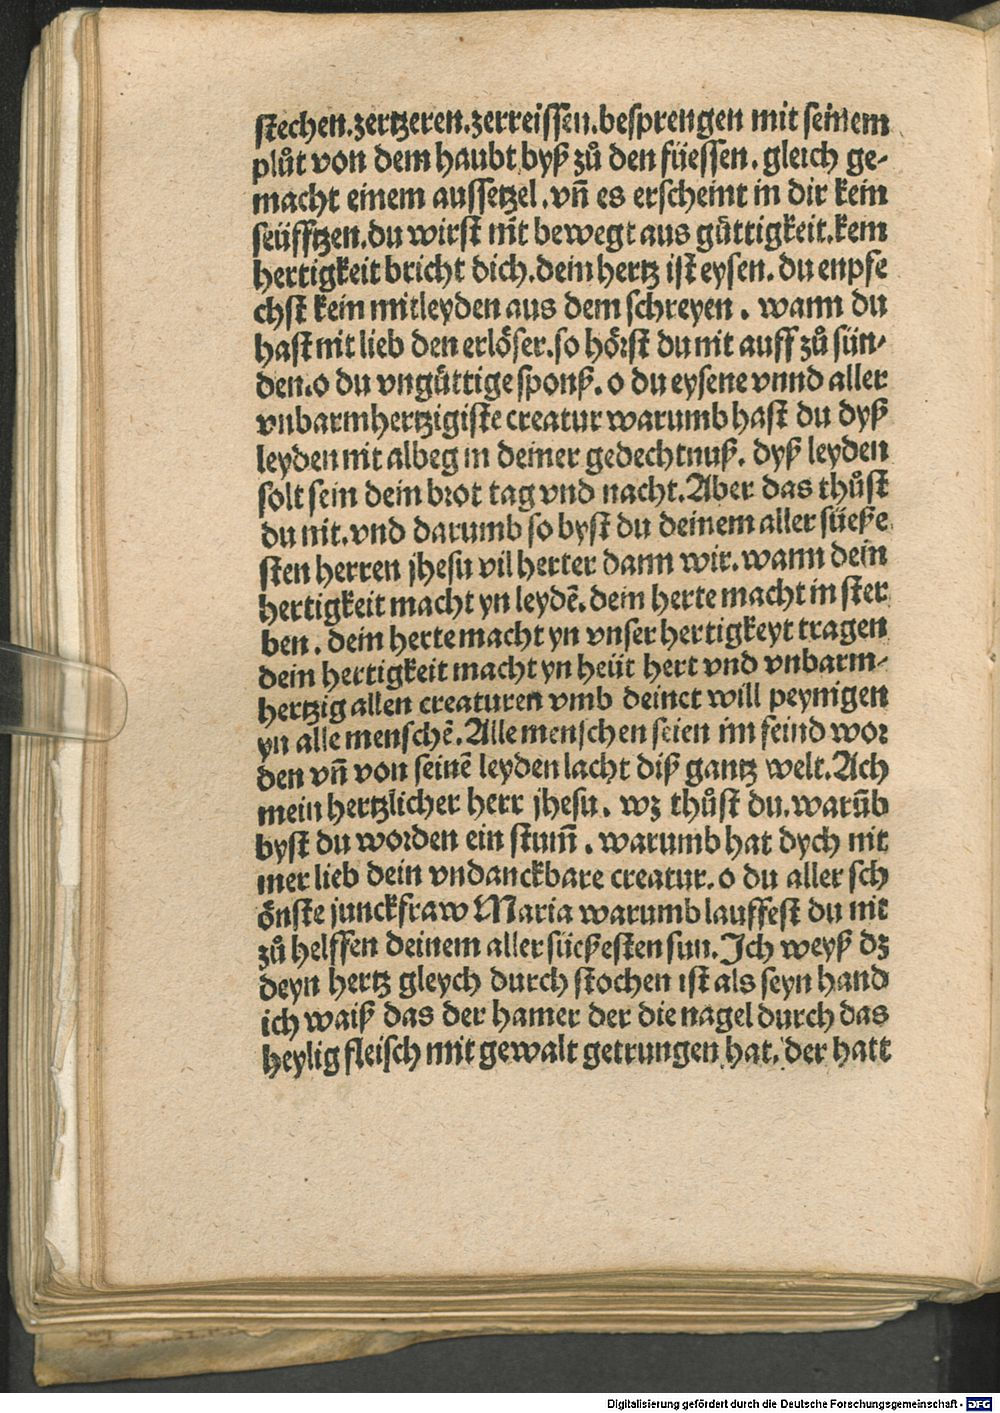 stechen.zertzeren.zerreissen.besprengen mit seinem
plůt von dem haubt byß zů den füessen. gleich ge-
macht einem aussetzel.vñ es erscheint in dir kein
seüfftzen.du wirst nit bewegt aus güttigkeit.kem
hertigkeit bricht dich.dein hertz ist eysen. du enpfe
chst kein mitleyden aus dem schreyen . wann du
hast nit lieb den erlöser.so hörst du nit auff zů sün-
den.o du vngüttige sponß. o du eysene vnnd aller
vnbarmhertzigiste creatur warumb hast du dyß
leyden nit albeg in deiner gedechtnuß. dyß leyden
solt sein dein brot tag vnd nacht.Aber das thůst
du nit.vnd darumb so byst du deinem aller süeße
sten herren jhesu vil herter dann wir.wann dein
hertigkeit macht yn leydẽ.dein herte macht in ster
ben . dein herte macht yn vnser hertigkeyt tragen
dein hertigkeit macht yn heüt hert vnd vnbarm-
hertzig allen creaturen vmb deinet will peynigen
yn alle menschẽ.Alle menschen seien im feind wor
den vñ von seinẽ leyden lacht diß gantz welt.Ach
mein hertzlicher herr jhesu . wz thůst du.warũb
byst du worden ein stum̃ . warumb hat dych nit
mer lieb dein vndanckbare creatur.o du aller sch
önste junckfraw Maria warumb lauffest du nit
zů helffen deinem aller süeßesten sun.Ich weyß dz
deyn hertz gleych durch stochen ist als seyn hand
ich waiß das der hamer der die nagel durch das
heylig fleisch mit gewalt getrungen hat. der hatt
Digitalisierung gefördert durch die Deutsche Forschungsgemeinschaft - DFG